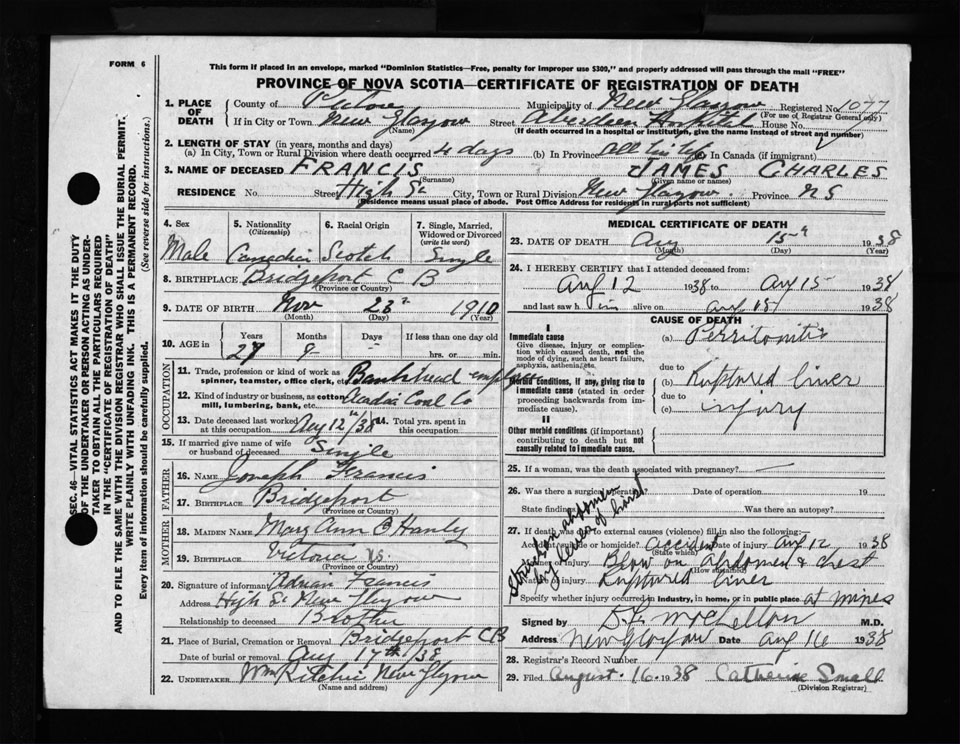 FORM 6
This form if placed in an envelope, marked "Dominion Statistics—Free, penalty for improper use $300," and properly addressed will pass through the mail "FREE"
PROVINCE OF NOVA SCOTIA—CERTIFICATE OF REGISTRATION OF DEATH
1. PLACE OF DEATH County of Pictou Municipality of New Glasgow Registered No. 1077 (For use of Registrar General only)
If in City or Town New Glasgow (Name) Street Aberdeen Hospital House No.
(If death occurred in a hospital or institution, give the name instead of street and number)
2. LENGTH OF STAY (in years, months and days)
(a) In City, Town or Rural Division where death occurred 4 days (b) In Province All his life (c) In Canada (if immigrant)
3. NAME OF DECEASED FRANCIS (Surname) JAMES CHARLES (Given name or names)
RESIDENCE No. Street High St City, Town or Rural Division New Glasgow. Province NS
(Residence means usual place of abode. Post Office Address for residents in rural parts not sufficient)
4. Sex Male
5. Nationality (Citizenship) Canadian
6. Racial Origin Scotch
7. Single, Married, Widowed or Divorced (write the word) Single
8. BIRTHPLACE Bridgeport C B
(Province or Country)
9. DATE OF BIRTH Nov (Month) 23 (Day) 1910 (Year)
10. AGE in Years 27 Months 9 Days – If less than one day old hrs. or min.
OCCUPATION
11. Trade, profession or kind of work as spinner, teamster, office clerk, etc. Bankhead employee
12. Kind of industry or business, as cotton mill, lumbering, bank, etc. Acadia Coal Co
13. Date deceased last worked at this occupation Aug 12th/38
14. Total yrs. spent in this occupation
15. If married give name of wife or husband of deceased Single
FATHER
16. NAME Joseph Francis
17. BIRTHPLACE Bridgeport
(Province or Country)
MOTHER
18. MAIDEN NAME Mary Ann B Hanly
19. BIRTHPLACE Victoria NS.
(Province or Country)
20. Signature of informant Adrian Francis
Address High St New Glasgow
Relationship to deceased Brother
21. Place of Burial, Cremation or Removal Bridgeport CB
Date of burial or removal Aug 17th/38
22. UNDERTAKER Wm Ritchie New Glasgow
(Name and address)
MEDICAL CERTIFICATE OF DEATH
23. DATE OF DEATH Aug (Month) 15th (Day) 1938 (Year)
24. I HEREBY CERTIFY that I attended deceased from:
Aug 12 1938 to Aug 15 1938
and last saw h im alive on Aug 15 1938
CAUSE OF DEATH
I
Immediate cause
Give disease, injury or complication which caused death, not the mode of dying, such as heart failure, asphyxia, asthenia, etc.
(a) Perritonitis
due to
Morbid conditions, if any, giving rise to immediate cause (stated in order proceeding backwards from immediate cause).
(b) Ruptured liver
due to
(c) injury
II
Other morbid conditions (if important) contributing to death but not causally related to immediate cause.
25. If a woman, was the death associated with pregnancy? —
26. Was there a surgical operation? Date of operation 19
State findings Was there an autopsy?
27. If death was due to external causes (violence) fill in also the following:
Accident, suicide or homicide? accident (State which) Date of injury Aug 12 1938
Manner of injury Blow on Abdomen & chest
(How sustained)
Nature of injury Ruptured liver
Specify whether injury occurred in industry, in home, or in public place at mines
Struck on abdomen by lever of hoist
Signed by M.D.
Address New Glasgow Date Aug 16 1938
28. Registrar's Record Number
29. Filed August. 16. 1938 Catherine Small
(Division Registrar)
SEC. 46—VITAL STATISTICS ACT MAKES IT THE DUTY
OF THE UNDERTAKER OR PERSON ACTING AS UNDER-
TAKER TO OBTAIN ALL THE PARTICULARS REQUIRED
IN THE "CERTIFICATE OF REGISTRATION OF DEATH"
AND TO FILE THE SAME WITH THE DIVISION REGISTRAR WHO SHALL ISSUE THE BURIAL PERMIT.
WRITE PLAINLY WITH UNFADING INK. THIS IS A PERMANENT RECORD.
Every item of information should be carefully supplied. (See reverse side for instructions.)